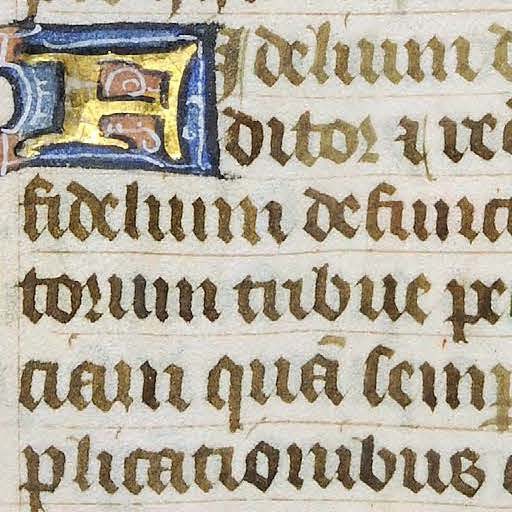 Fidelium d
ditor ⁊ re
fidelium defunc
torum tribue pe
ciam quā semp
plicationibus